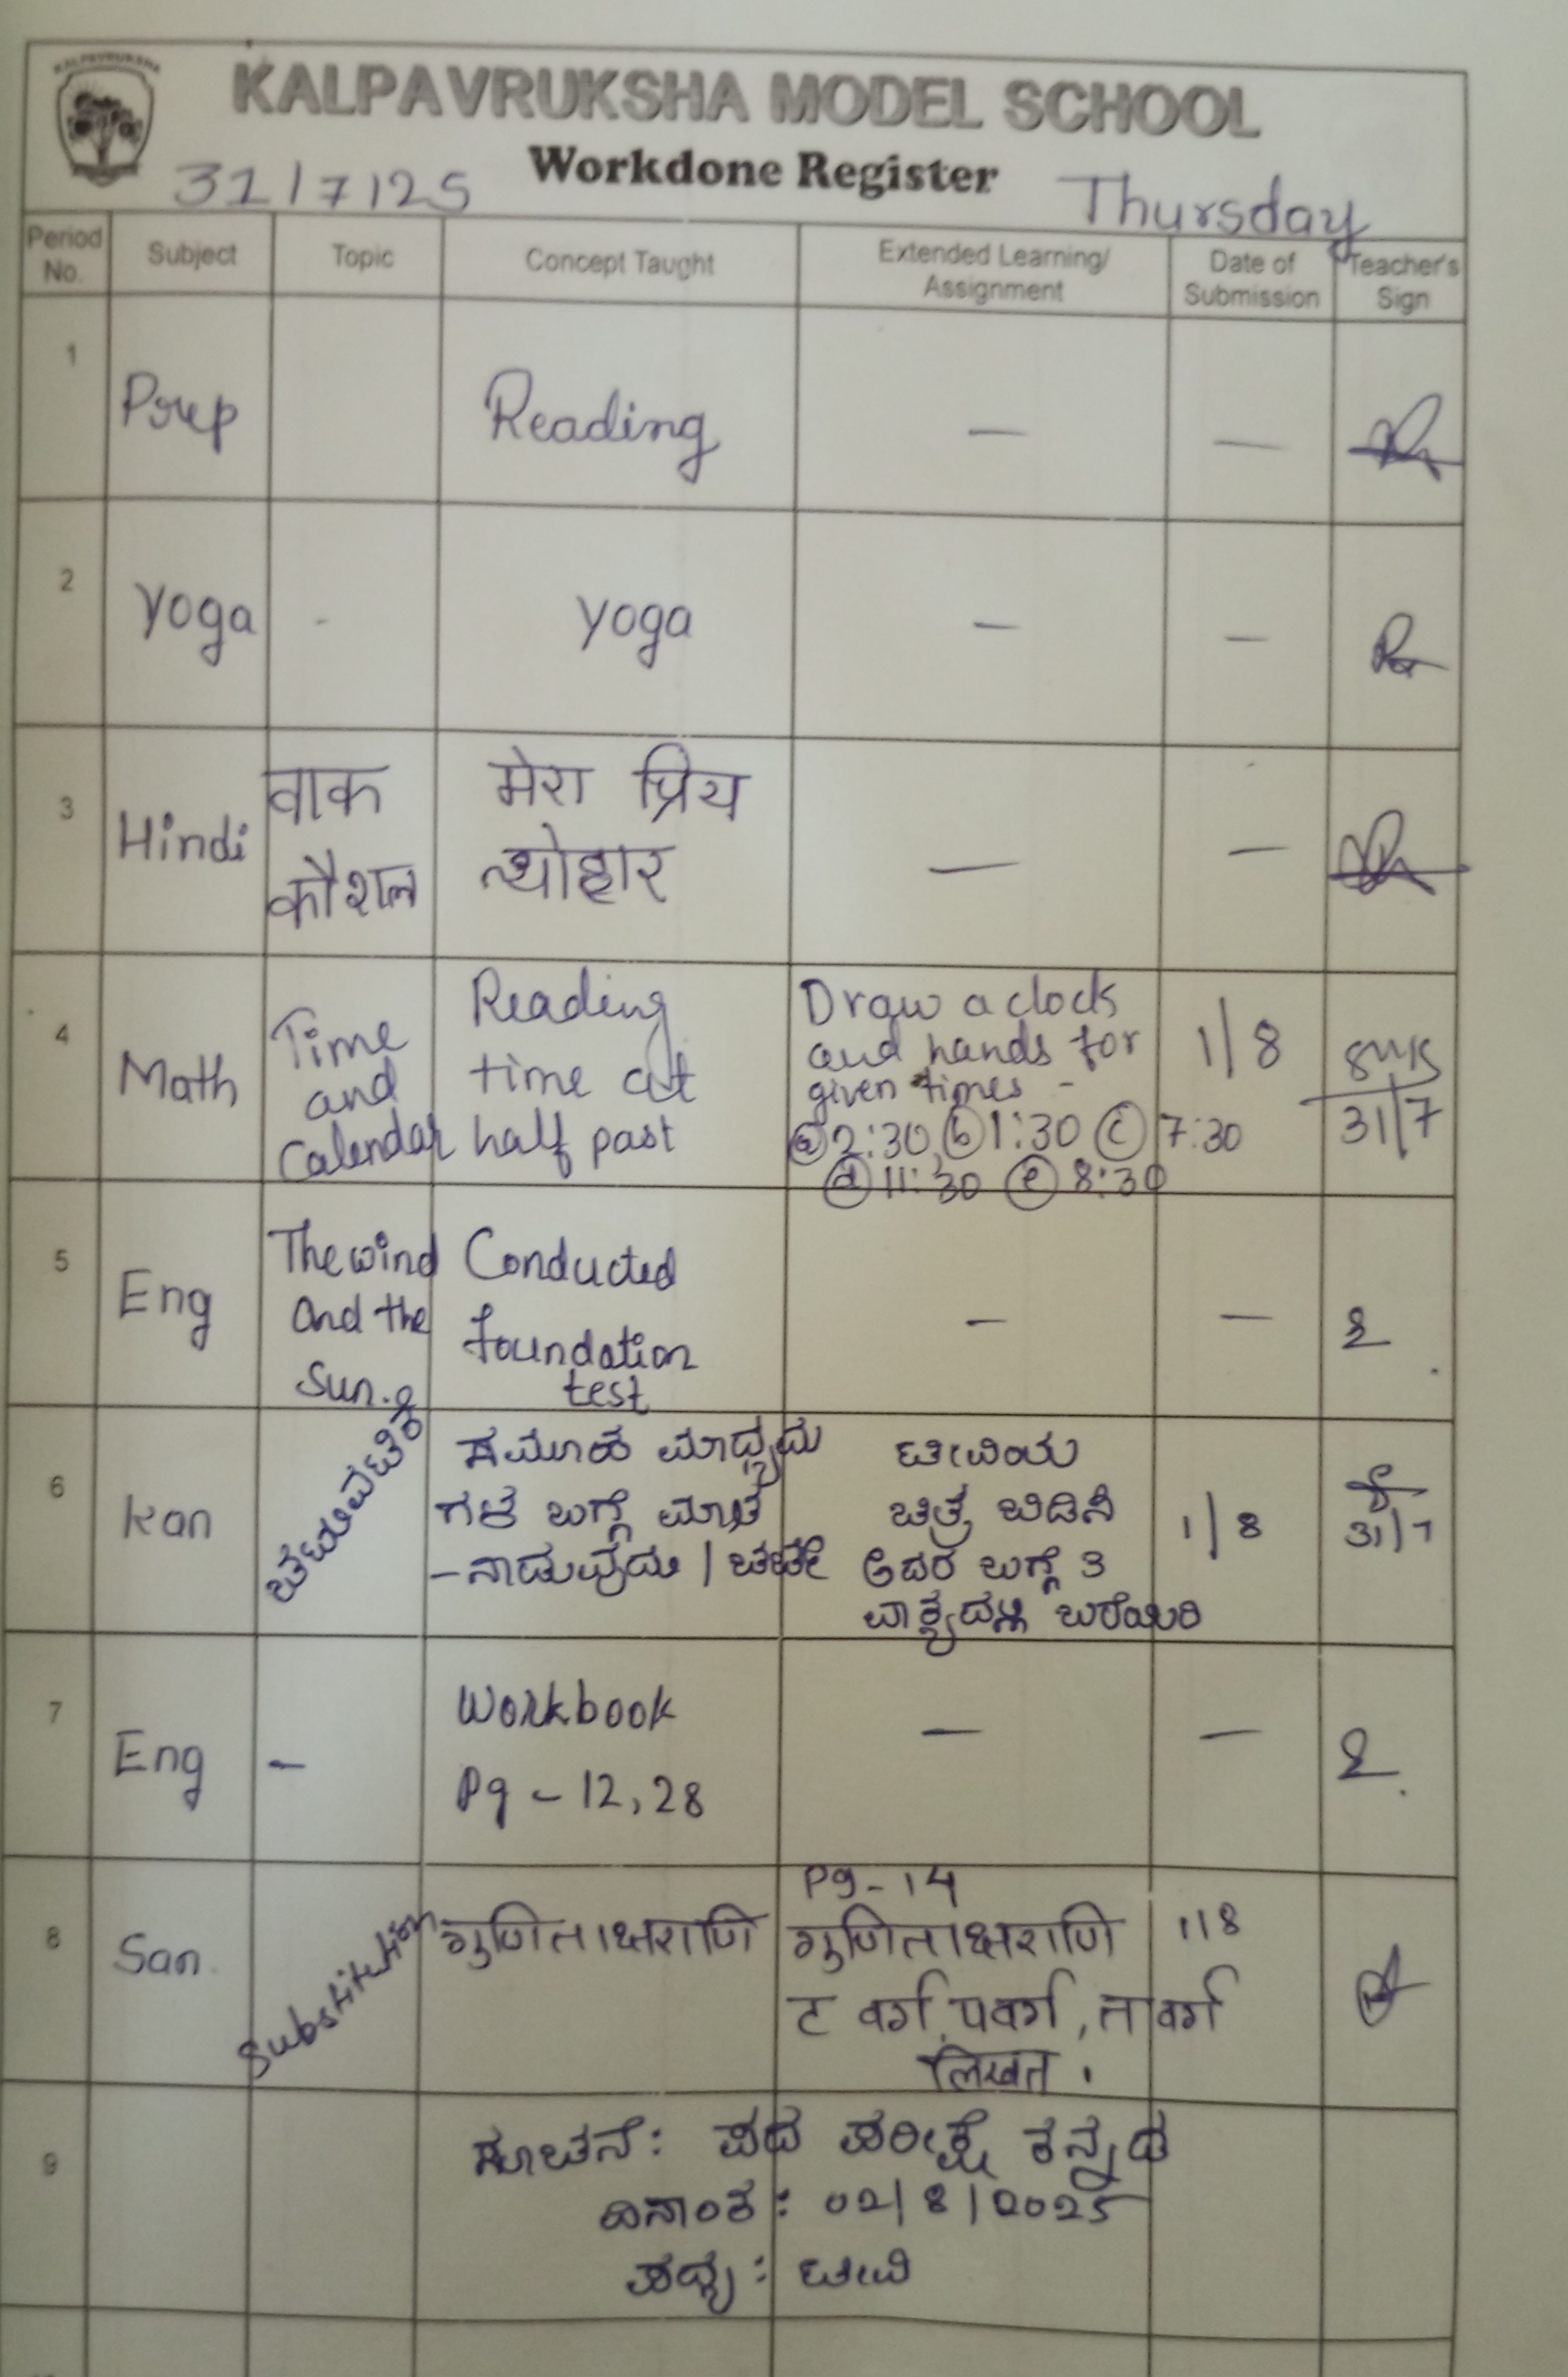 KALPAVRUKSHA
KALPAVRUKSHA MODEL SCHOOL
Workdone Register
31/7/25 Thursday
Period No. Subject Topic Concept Taught Extended Learning/ Assignment Date of Submission Teacher's Sign
1 Prep Reading — —
2 Yoga - Yoga — —
3 Hindi वाक मेरा प्रिय — —
कौशल त्योहार
4 Math Time Reading Draw a clock 1/8
and time at and hands for
Calendar half past given times -
ⓐ 2:30, ⓑ 1:30 ⓒ 7:30 31/7
ⓓ 11:30 ⓔ 8:30
5 Eng The wind Conducted — —
and the foundation
Sun. test
6 Kan ಚಟುವಟಿಕೆ ಸಮೂಹ ಮಾಧ್ಯಮ ಟೀವಿಯ 1/8
ಗಳ ಬಗ್ಗೆ ಮಾತ ಚಿತ್ರ ಬಿಡಿಸಿ 31/7
-ನಾಡುವುದು / ಚರ್ಚೆ ಅದರ ಬಗ್ಗೆ 3
ವಾಕ್ಯದಲ್ಲಿ ಬರೆಯಿರಿ
7 Eng - Workbook — —
Pg - 12, 28
8 San. Substitution गुणिताक्षराणि Pg - 14 1/8
गुणिताक्षराणि
ट वर्ग, पवर्ग, तवर्ग
लिखत .
9 ಸೂಚನೆ: ಪದ ಪರೀಕ್ಷೆ ಕನ್ನಡ
ದಿನಾಂಕ: 02/8/2025
ಪದ್ಯ: ಟೀವಿ